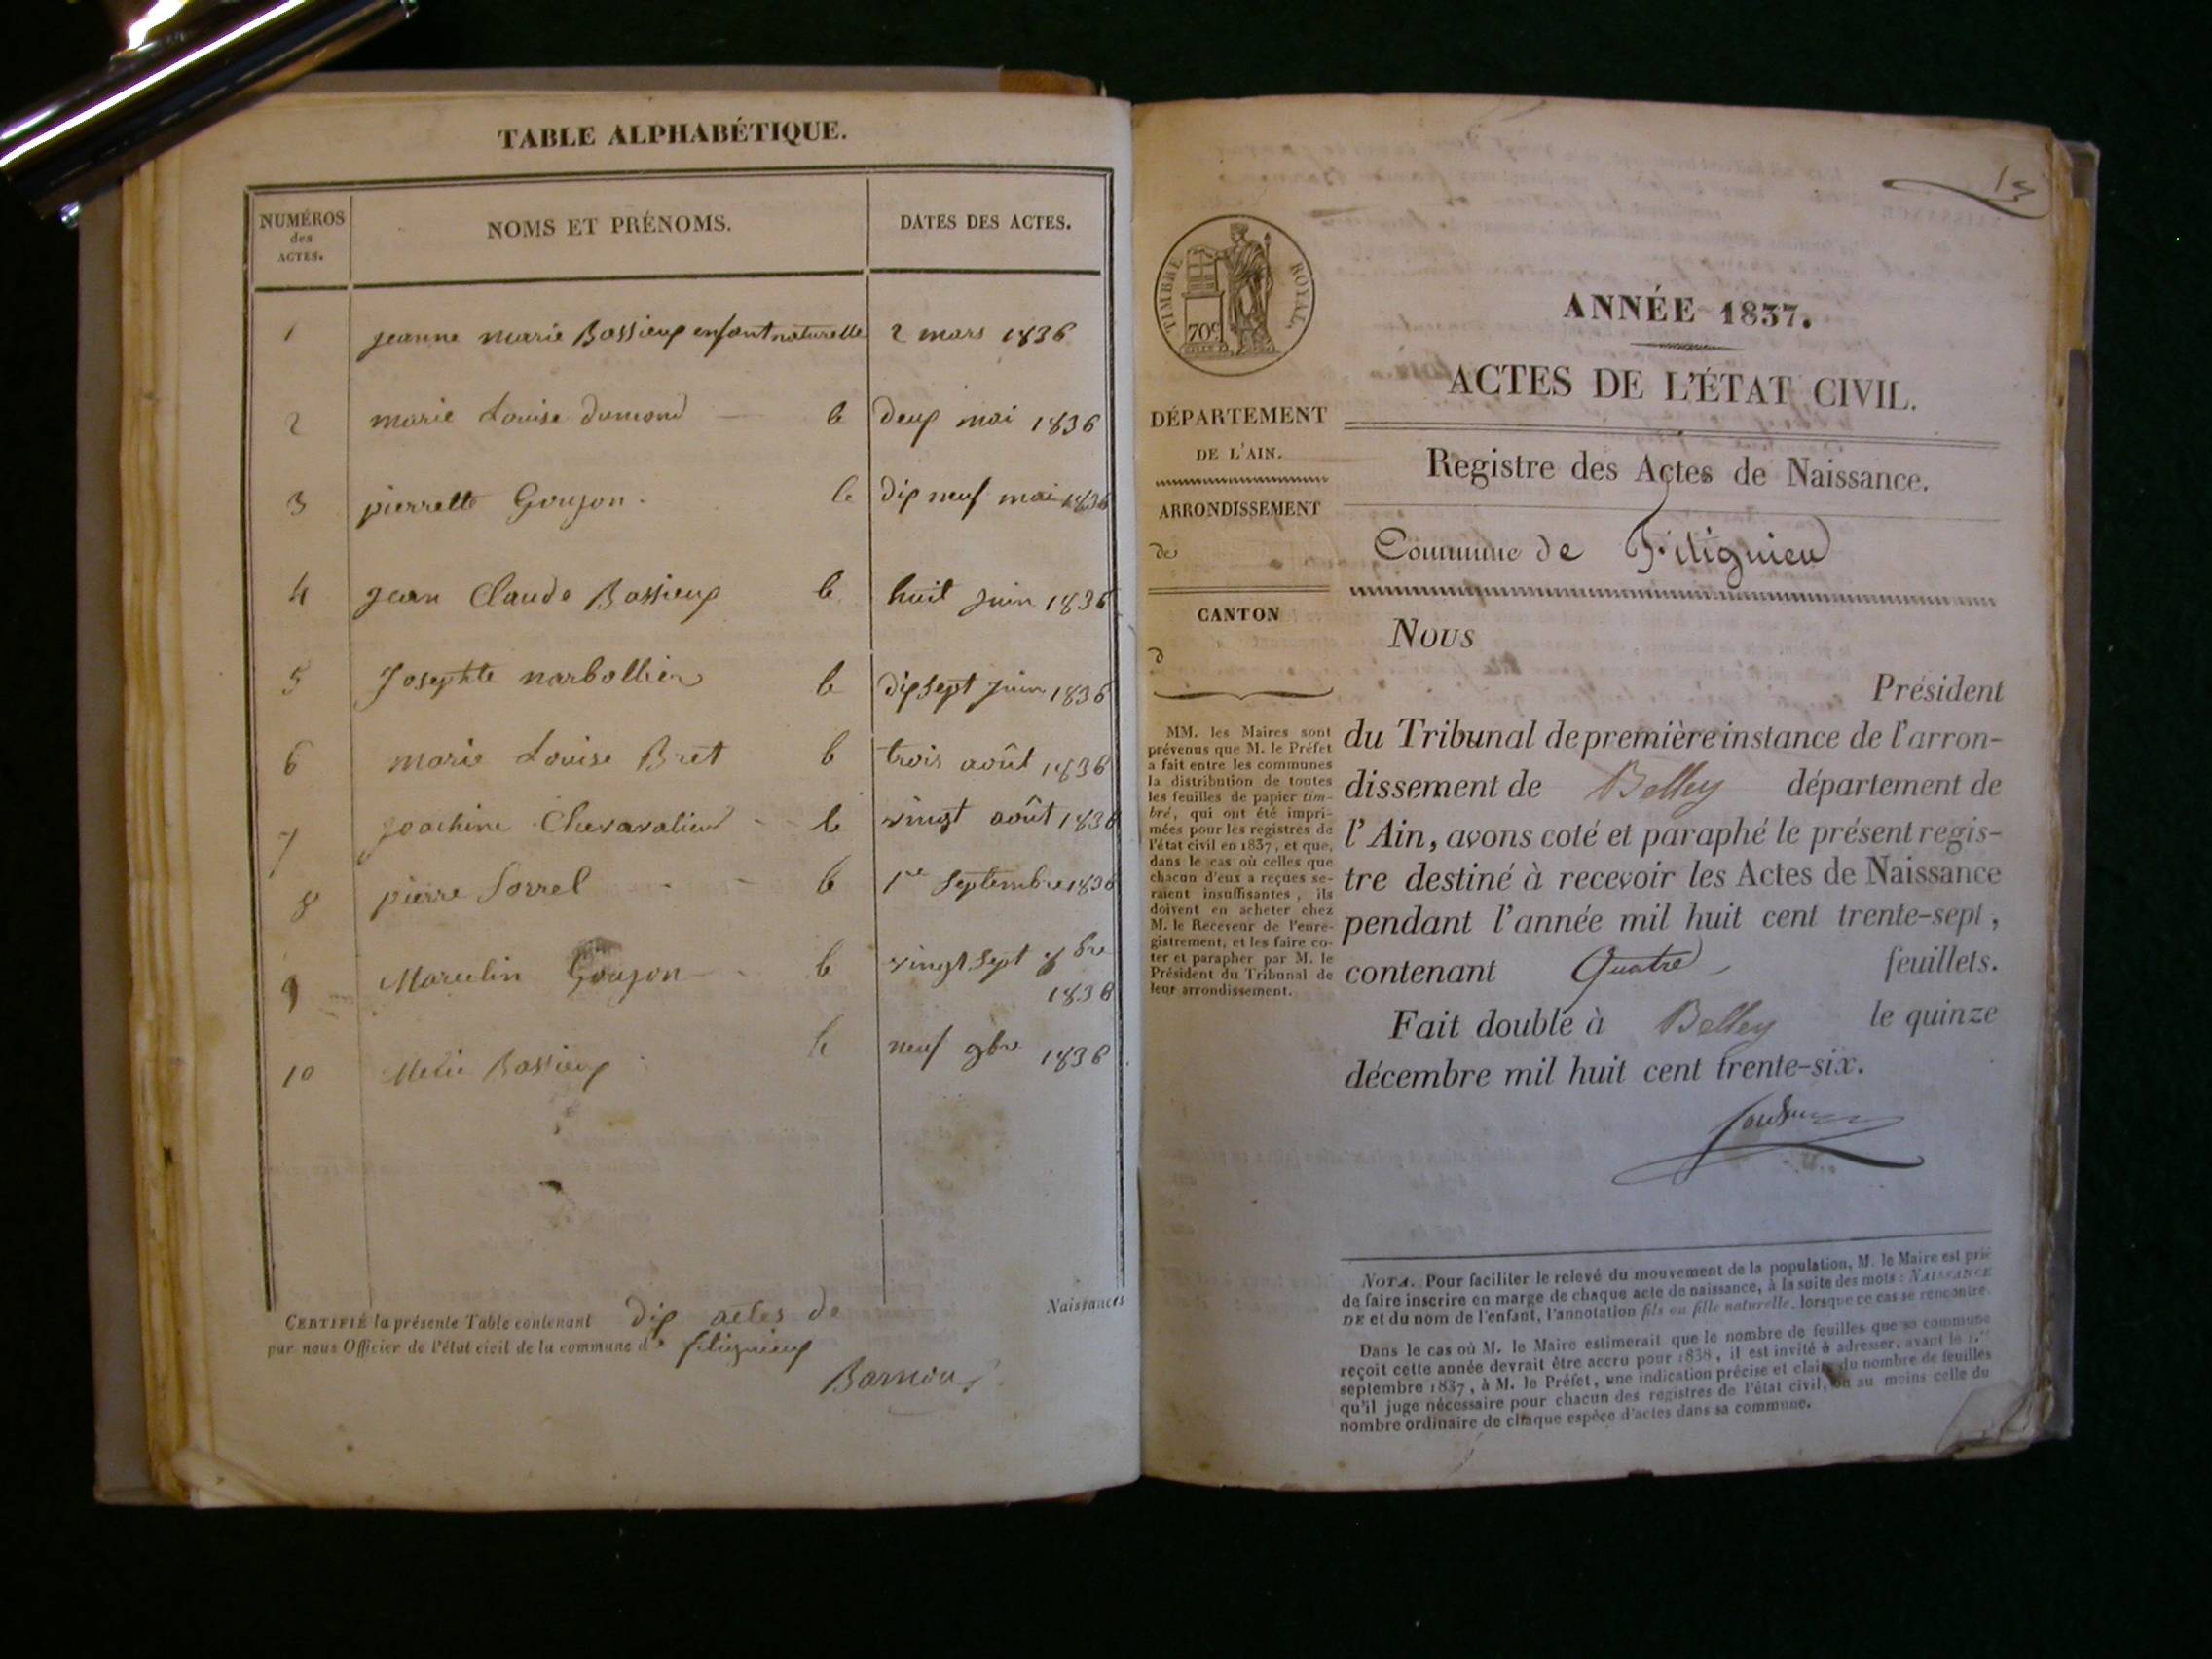 TABLE ALPHABÉTIQUE.
NUMÉROS des ACTES. NOMS ET PRÉNOMS. DATES DES ACTES.
1 jeanne marie Bossieux enfant naturelle 2 mars 1836
2 marie Louise dumond le deux mai 1836
3 pierrette Goujon le dix neuf mai 1836
4 jean Claude Bossieux le huit juin 1836
5 Josephte narbollier le dix sept juin 1836
6 marie Louise Bret le trois août 1836
7 joachine le vingt août 1836
8 pierre Sorrel le 1re septembre 1836
9 Marcelin Goujon le vingt sept
1836
10 Bossieux le neuf 9bre 1836
CERTIFIÉ la présente Table contenant dix actes de Naissances
par nous Officier de l'état civil de la commune de
TIMBRE ROYAL.
70c
DÉPARTEMENT
DE L'AIN.
ARRONDISSEMENT
de
CANTON
d
MM. les Maires sont
prévenus que M. le Préfet
a fait entre les communes
la distribution de toutes
les feuilles de papier tim-
bré, qui ont été impri-
mées pour les registres de
l'état civil en 1837, et que,
dans le cas où celles que
chacun d'eux a reçues se-
raient insuffisantes, ils
doivent en acheter chez
M. le Receveur de l'enre-
gistrement, et les faire co-
ter et parapher par M. le
Président du Tribunal de
leur arrondissement.
ANNÉE 1837.
ACTES DE L'ÉTAT CIVIL.
Registre des Actes de Naissance.
Commune de Flignieu
Nous
Président
du Tribunal de première instance de l'arron-
dissement de Belley département de
l'Ain, avons coté et paraphé le présent regis-
tre destiné à recevoir les Actes de Naissance
pendant l'année mil huit cent trente-sept,
contenant Quatre feuillets.
Fait double à Belley le quinze
décembre mil huit cent trente-six.
NOTA. Pour faciliter le relevé du mouvement de la population, M. le Maire est prié
de faire inscrire en marge de chaque acte de naissance, à la suite des mots : NAISSANCE
DE et du nom de l'enfant, l'annotation fils ou fille naturelle, lorsque ce cas se rencontre.
Dans le cas où M. le Maire estimerait que le nombre de feuilles que sa commune
reçoit cette année devrait être accru pour 1838, il est invité à adresser, avant le 1.er
septembre 1837, à M. le Préfet, une indication précise et claire du nombre de feuilles
qu'il juge nécessaire pour chacun des registres de l'état civil, ou au moins celle du
nombre ordinaire de chaque espèce d'actes dans sa commune.